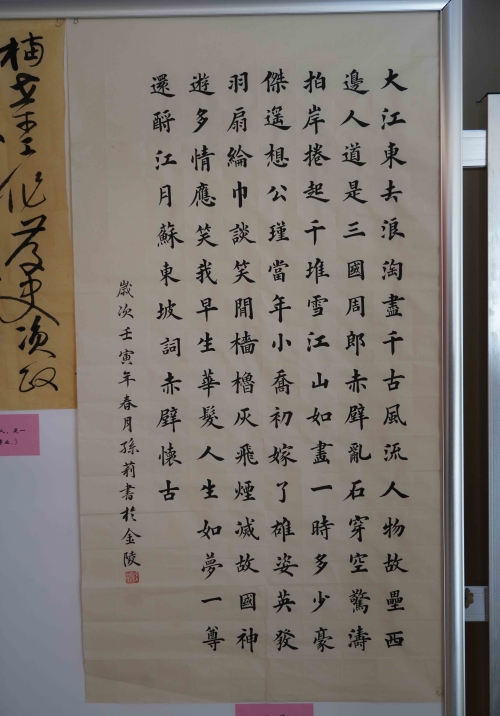 大江東去浪淘盡千古風流人物故壘西
邊人道是三國周郎赤壁亂石穿空驚濤
拍岸捲起千堆雪江山如畫一時多少豪
傑遥想公瑾當年小喬初嫁了雄姿英發
羽扇綸巾談笑閒檣櫓灰飛煙滅故國神
遊多情應笑我早生華髮人生如夢一尊
還酹江月蘇東坡詞赤壁懷古
歲次壬寅年春月孫莉書於金陵